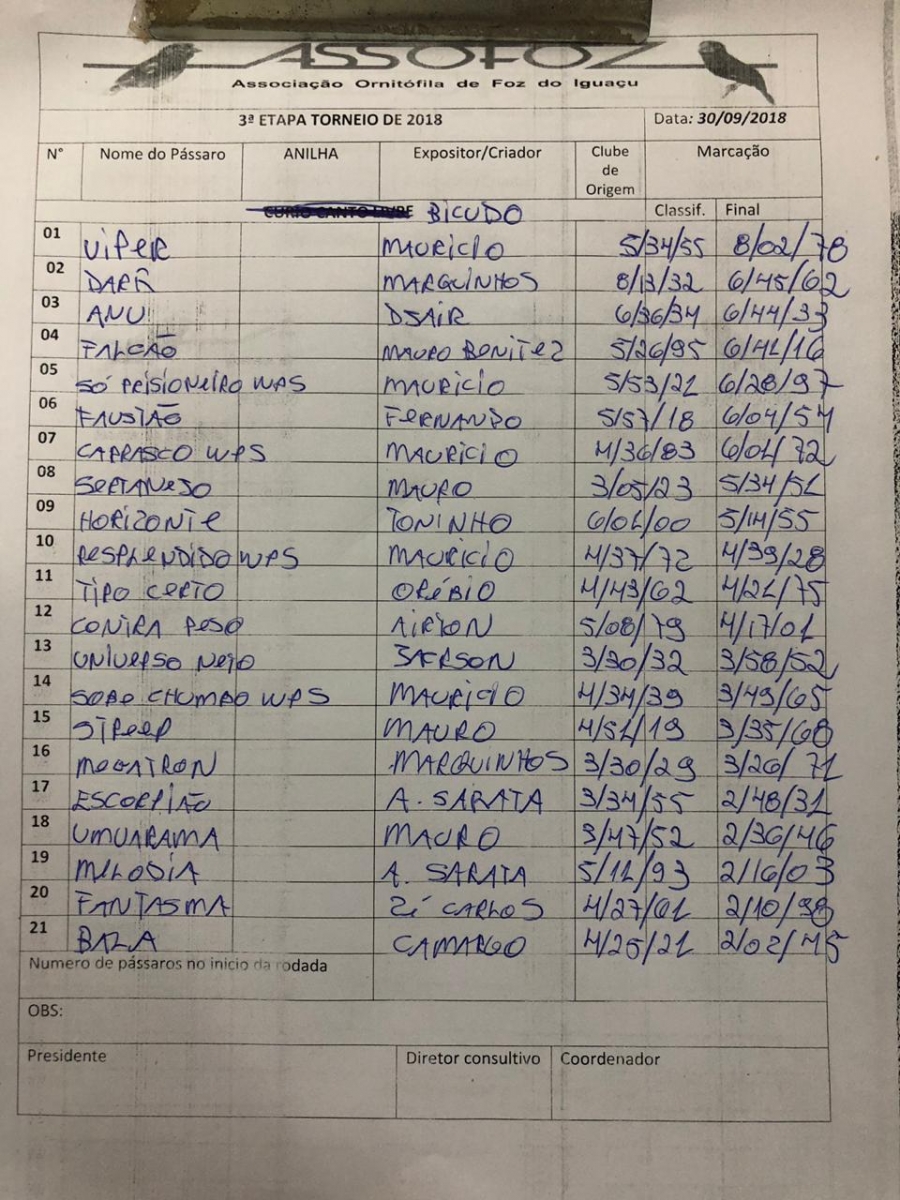 ASSOFOZ
Associação Ornitófila de Foz do Iguaçu
3ª ETAPA TORNEIO DE 2018 Data: 30/09/2018
N° Nome do Pássaro ANILHA Expositor/Criador Clube de Origem Marcação
CURIO CANTO LIVRE BICUDO Classif. Final
01 VIPER MAURICIO 5/34/55 8/02/78
02 MARQUINHOS 8/13/32 6/45/62
03 ANU DJAIR 6/36/34 6/44/33
04 FALCÃO MAURO BONITEZ 5/26/95 6/41/16
05 SÓ PRISIONEIRO WPS MAURICIO 5/53/21 6/28/97
06 FAUSTÃO FERNANDO 5/57/18 6/04/54
07 CARRASCO WPS MAURICIO 4/36/83 6/01/72
08 SERTANEJO MAURO 3/05/23 5/34/51
09 HORIZONTE TONINHO 6/01/00 5/14/55
10 RESPLENDIDO WPS MAURICIO 4/37/72 4/39/28
11 TIPO CERTO ORÉBIO 4/43/62 4/21/75
12 CONTRA PESO AIRTON 5/08/79 4/17/01
13 UNIVERSO NEJO JAERSON 3/30/32 3/58/52
14 SOBE CHUMBO WPS MAURICIO 4/34/39 3/49/65
15 STREEP MAURO 4/51/19 3/35/68
16 MEGATRON MARQUINHOS 3/30/29 3/26/71
17 ESCORPIÃO A. SARATA 3/34/55 2/48/31
18 UMUARAMA MAURO 3/47/52 2/36/46
19 MELODIA A. SARATA 5/11/93 2/16/03
20 FANTASMA ZÉ CARLOS 4/27/61 2/10/98
21 BALA CAMARGO 4/25/21 2/02/45
Numero de pássaros no inicio da rodada
OBS:
Presidente Diretor consultivo Coordenador